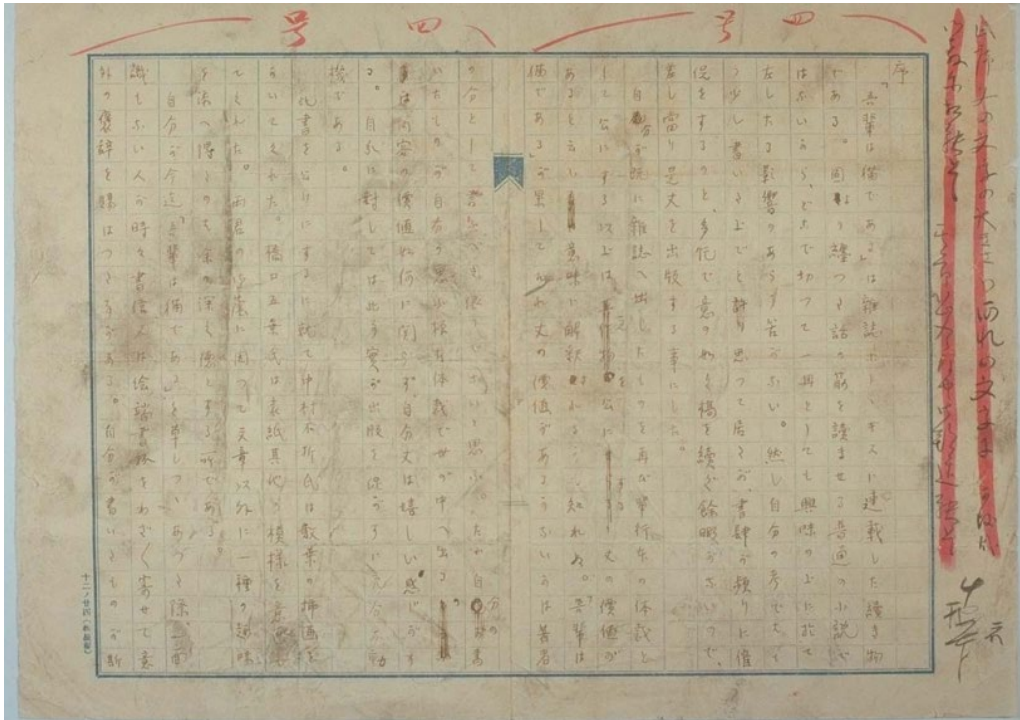 四号
四号
序
「吾輩は猫である」は雑誌ホトヽギスに連載した続き物
である。固より纏つた話の筋を読ませる普通の小説で
はないから、どこで切つて一冊としても興味の上に於て
左したる影響のあらう筈がない。然し自分の考ではも
う少し書いた上でと思つて居たが、書肆が頻りに催
促をするのと、多忙で意の如く稿を続ぐ餘暇がないので、
差し當り是丈を出版する事にした。
自分が既に雑誌へ出したものを再び単行本の体裁と
して公にする以上は、之を公にする丈の價値が
あると云ふ意味に解釈されるかも知れぬ。「吾輩は
猫である」が果してそれ丈の價値があるかないかは著者
の分として言ふべき限りでないと思ふ。たゞ自分の書
いたものが自分の思ふ様な体裁で世の中へ出るのは、
内容の價値如何に関らず、自分丈は嬉しい感じがす
る。自分に對しては此事実が出版を促がすに充分な動
機である。
此書を公けにするに就て中村不折氏は数葉の挿画を
かいてくれた。橋口五葉氏は表紙其他の模様を意匠し
てくれた。両君の御蔭に因つて文章以外に一種の趣味
を添へ得たるは余の深く徳とする所である。
自分が今迄「吾輩は猫である」を草しつゝあつた際、一面
識もない人が時々書信又は絵端書抔をわざ〳〵寄せて意
外の褒辞を賜はつた事がある。自分が書いたものが斯